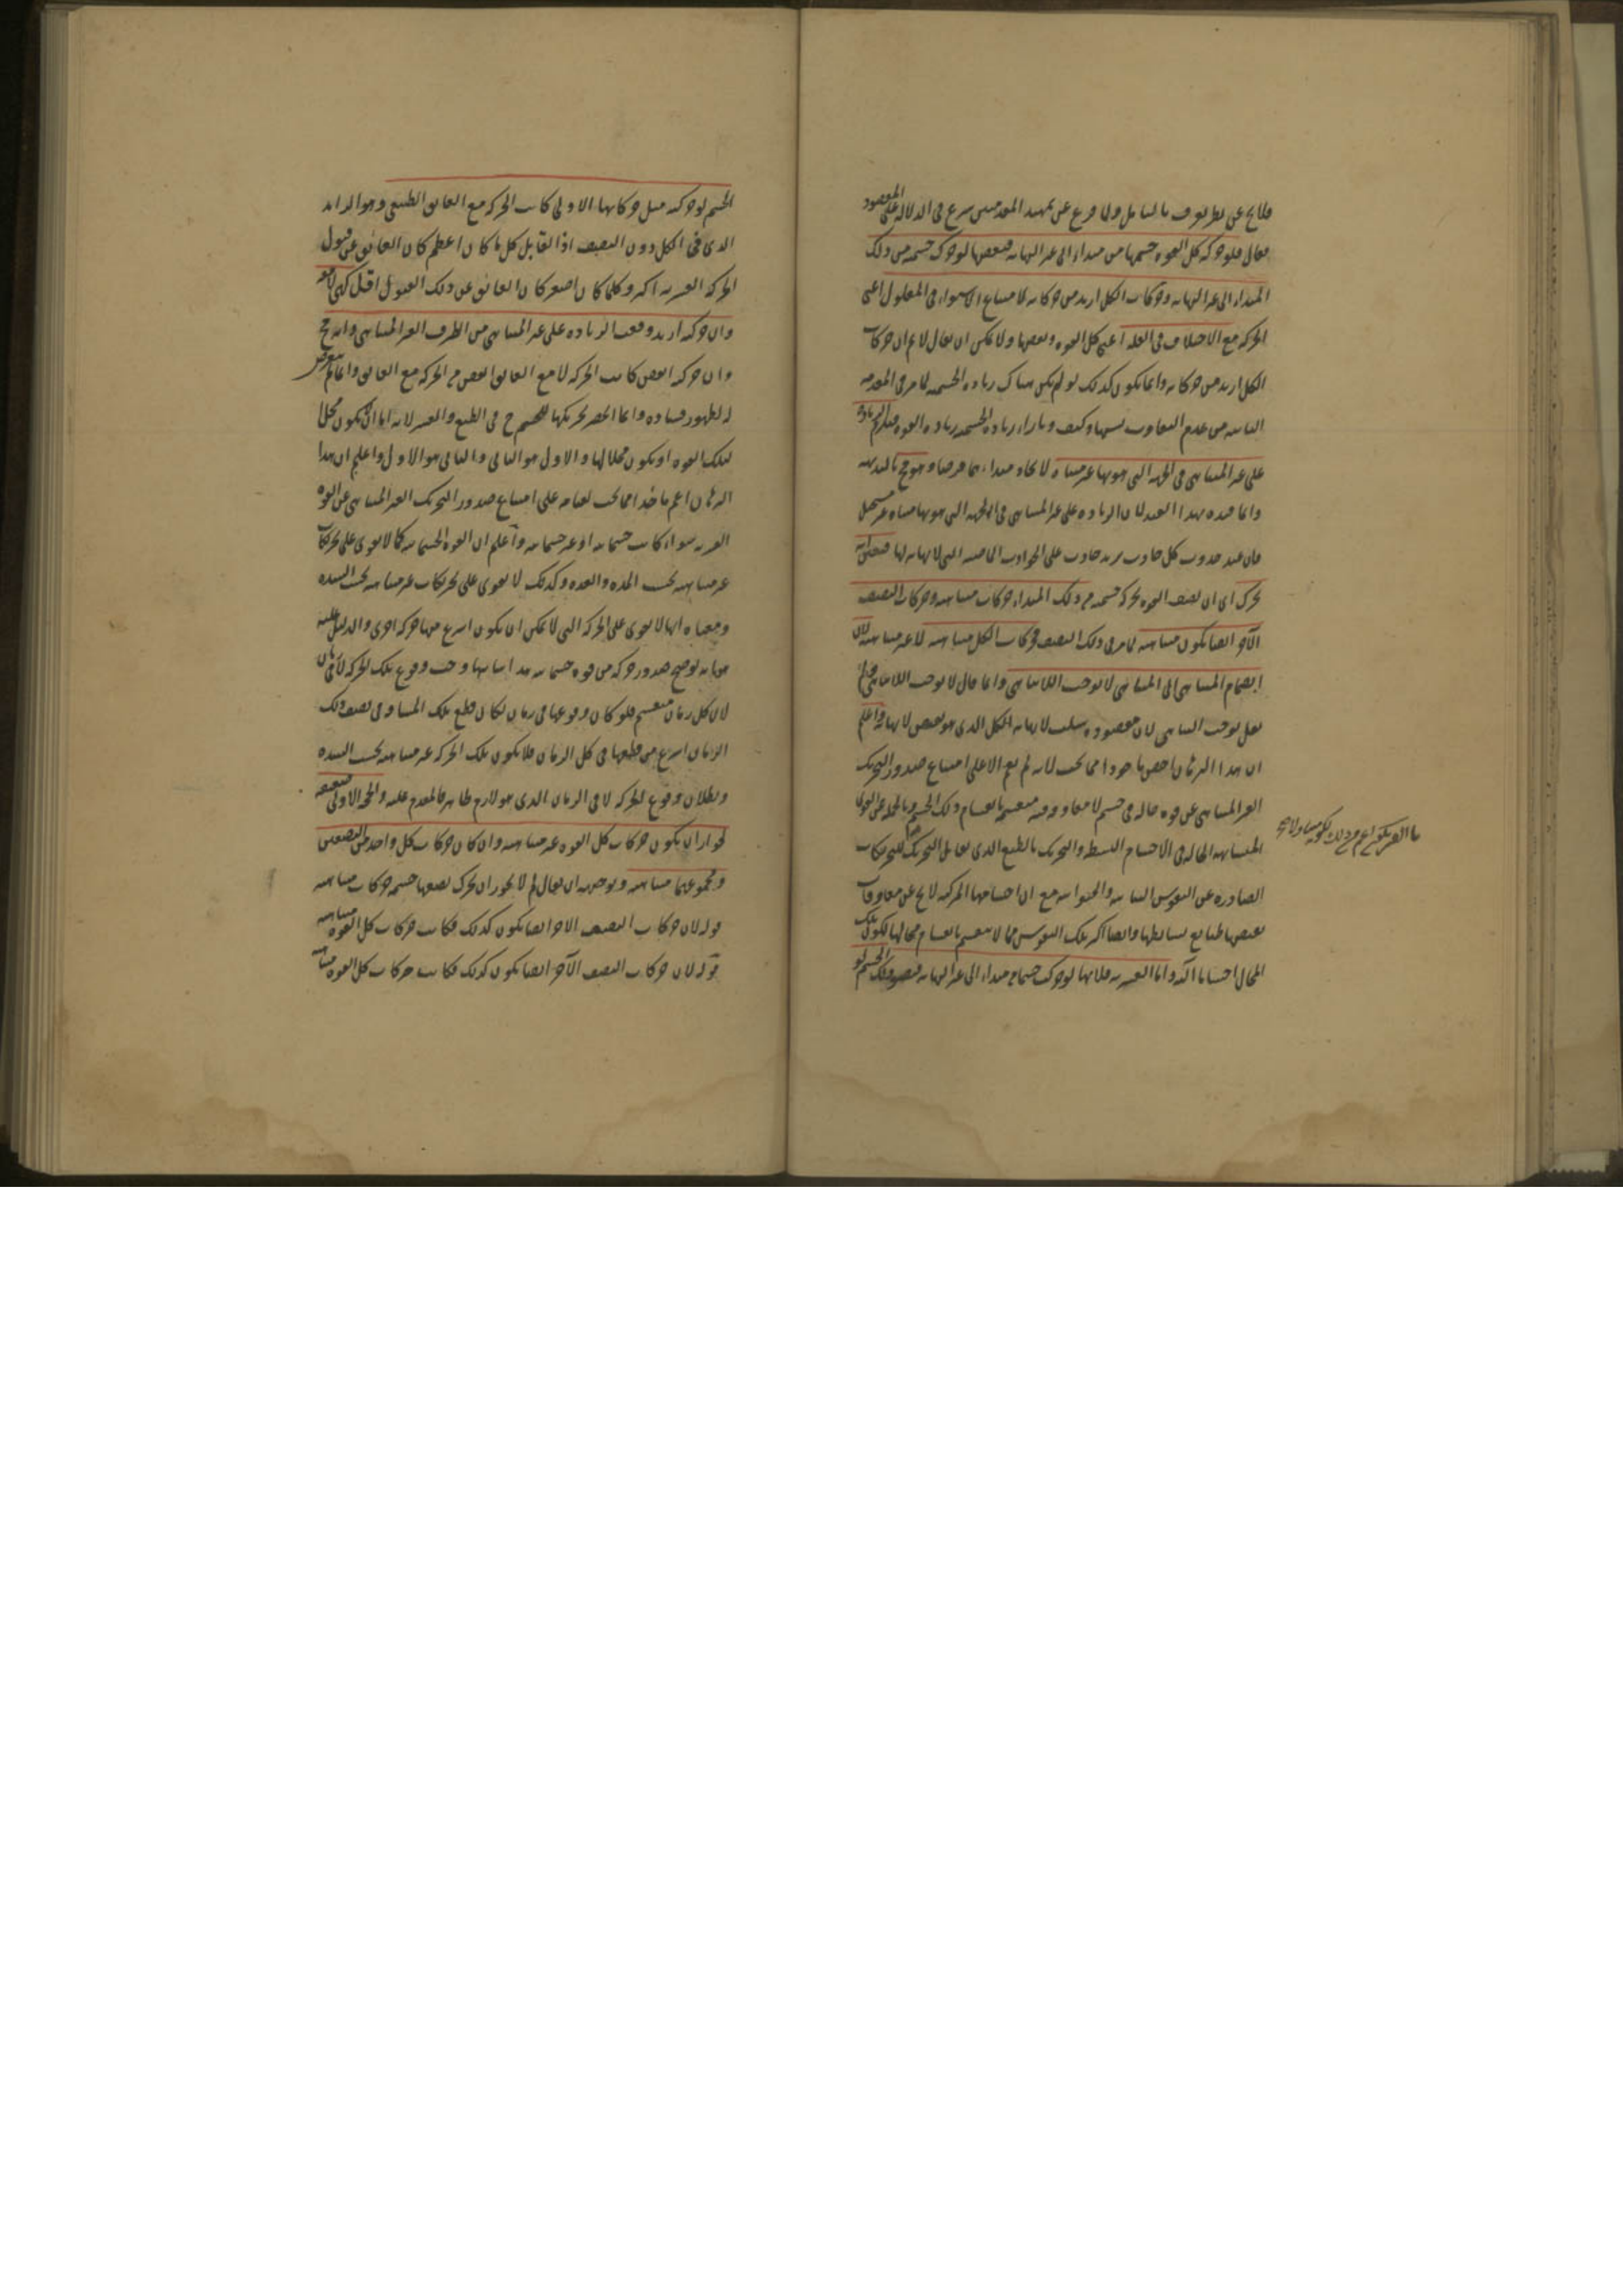 فلا يخ عن نظر يعرف بالتأمل ولما فرغ عن تمهيد المقدمتين شرع فى الدلالة على المقصود
فقال فلو حركت كل القوة جسمها من مبداء الى غير النهاية فبعضها لو حرك جسمه من ذلك
المبداء الى غير النهاية وحركات الكل ازيد من حركاته لامتناع الاستواء فى المعلول اعنى
الحركة مع الاختلاف فى العلة اعنى كل القوة وبعضها ولا يمكن ان يقال لا نم ان حركات
الكل ازيد من حركاته وانما يكون كذلك لو لم يكن هناك زيادة الجسمية لما مر فى المقدمة
الثانية من عدم التفاوت بسببها وكيف وبازاء زيادة الجسمية زيادة القوة فيلزم الزيادة
على غير المتناهى فى الجهة التى هو بها غير متناه لاتحاد مبداءهما فرضا وهو مح بالبديهة
وانما قيده بهذا القيد لان الزيادة على غير المتناهى فى الجهة التى هو بها متناه غير مستحيل
فان عند حدوث كل حادث يزيد حادث على الحوادث الماضية التى لا نهاية لها فبعض القوة
يحرك اى ان نصف القوة يحرك جسمه من ذلك المبداء حركات متناهية وحركات النصف
الآخر ايضا يكون متناهية لما مر فى ذلك النصف فحركات الكل متناهية لا غير متناهية لان
انضمام المتناهى الى المتناهى لا يوجب اللاتناهى وانما قال لا يوجب اللاتناهى ولم
يقل يوجب التناهى لان مقصوده سلب لا نهاية الكل الذى هو نقيض لا نهايته واعلم
ان هذا البرهان اخص ماخودا مما يجب لانه لم يقم الا على امتناع صدور التحريك
الغير المتناهى عن قوة حالة فى جسم لا معاوق فيه منقسمة بانقسام ذلك الجسم وبالجملة عن القوى
المتشابهة الحالة فى الاجسام البسيطة والتحريك بالطبع الذى يقابل التحريك للتحريكات
الصادرة عن النفوس النباتية والحيوانية مع ان اجسامها المركبة لا يخ عن معاوقات
بعضها طبايع بسايطها وايضا اكثر تلك النفوس مما لا ينقسم بانقسام محالها لكون تلك
المحال اجساما الية واما القسرية فلانها لو حركت جسما من مبداء الى غير النهاية فنصف ذلك الجسم لو
الجسم لو حركته مثل حركاتها الاولى كانت الحركة مع العايق الطبيعى وهو الزايد
الذى فى الكل دون النصف اذ القابل كل ما كان اعظم كان العائق عن قبول
الحركة القسرية اكبر وكلما كان اصغر كان العائق عن ذلك القبول اقل كهى لا معه
وان حركته ازيد وقعت الزيادة على غير المتناهى من الطرف الغير المتناهى وانه مح
وان حركته انقص كانت الحركة لا مع العايق انقص من الحركة مع العايق وانما لم يتعرض
له لظهور فساده وانما انحصر تحريكها للجسم ح فى الطبع والقسر لانه اما ان يكون محلا
لتلك القوة او يكون محلا لها والاول هو الثانى والثانى هو الاول واعلم ان هذا
البرهان اعم ماخذا مما يجب لقيامه على امتناع صدور التحريك الغير المتناهى عن القوة
القسرية سواء كانت جسمانية او غير جسمانية واعلم ان القوة الجسمانية كما لا يقوى على تحريكات
غير متناهية بحسب المدة والعدة وكذلك لا يقوى على تحريكات غير متناهية بحسب الشدة
ومعناه انها لا يقوى على الحركة التى لا يمكن ان يكون اسرع منها حركة اخرى والدليل عليه
هو انه لو صح صدور حركة من قوة جسمانية هذا شانها وجب وقوع تلك الحركة لا فى زمان
لان كل زمان منقسم فلو كان وقوعها فى زمان لكان قطع تلك المسافة فى نصف ذلك
الزمان اسرع من قطعها فى كل الزمان فلا يكون تلك الحركة غير متناهية بحسب الشدة
وبطلان وقوع الحركة لا فى الزمان الذى هو لازم ظاهر فالمقدم مثله والحجة الاولى ضعيفة
لجواز ان يكون حركات كل القوة غير متناهية وان كان حركات كل واحد من النصفين
ومجموعهما متناهية وتوجيهه ان يقال لم لا يجوز ان يحرك نصفها جسمه حركات متناهية
قوله لان حركات النصف الاخر ايضا يكون كذلك فكانت حركات كل القوة متناهية
قوله لان حركات النصف الآخر ايضا يكون كذلك فكانت حركات كل القوة متناهية